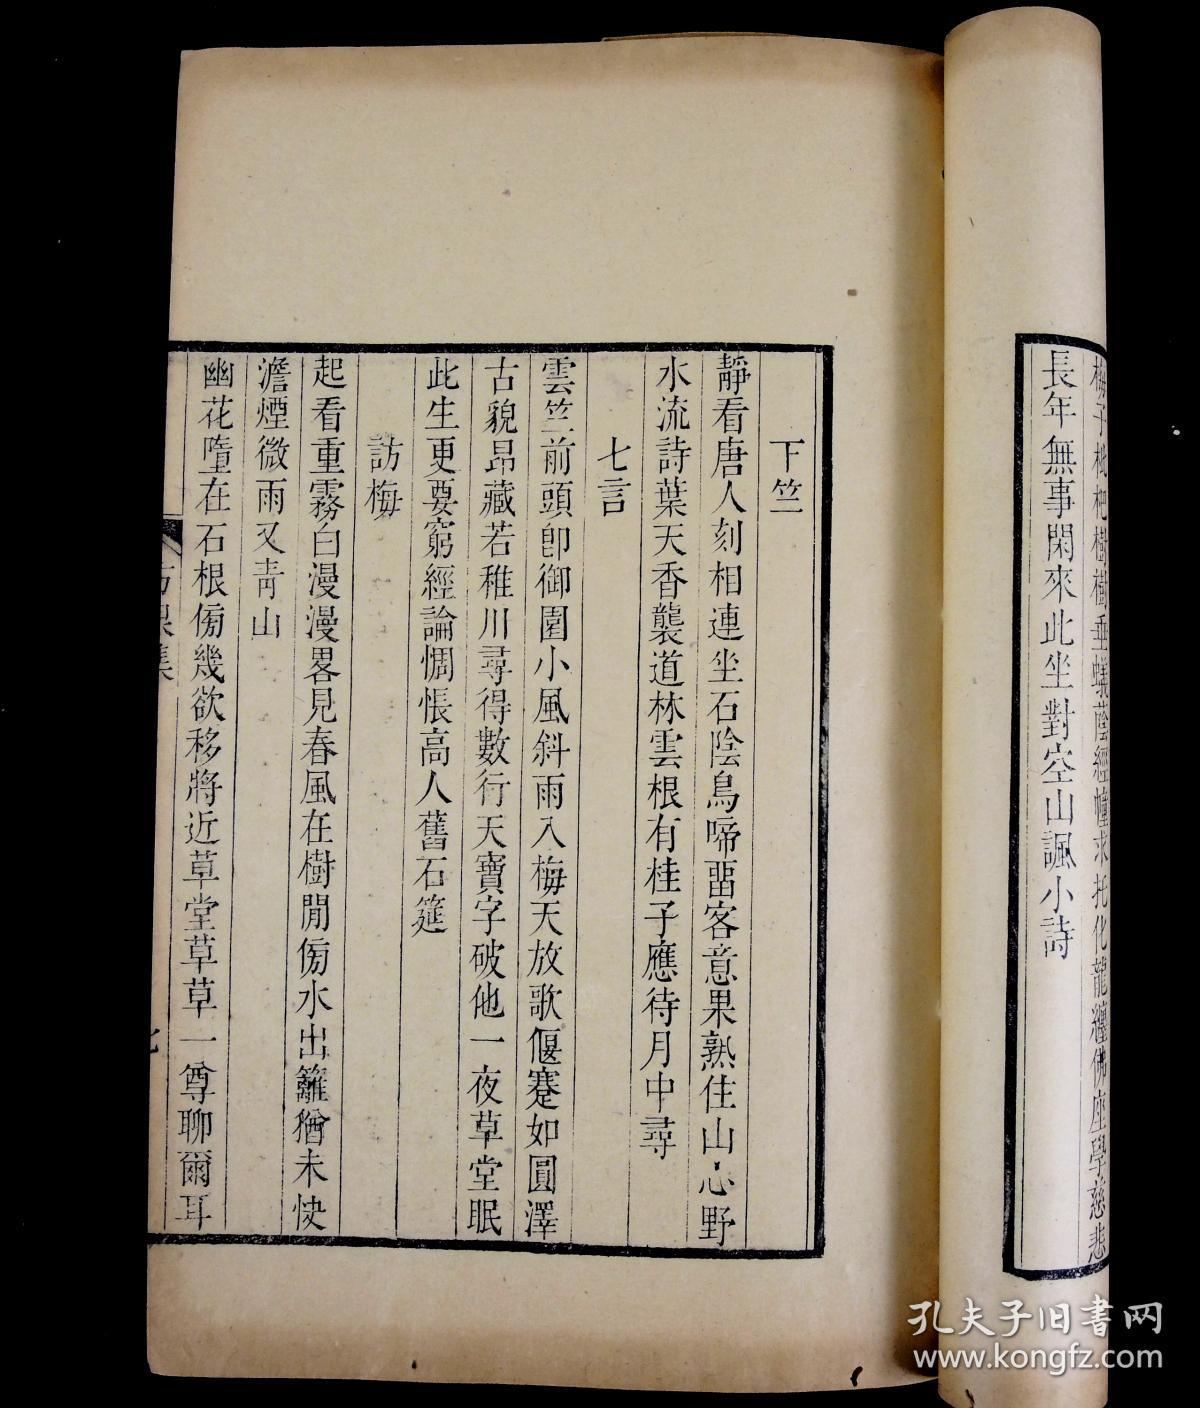 梅子枇杷樹樹垂蟻蔭經幢求托化龍纏佛座學慈悲
長年無事閑來此坐對空山諷小詩
下竺
靜看唐人刻相連坐石陰鳥啼畱客意果熟住山心野
水流詩葉天香襲道林雲根有桂子應待月中尋
七言
雲竺前頭卽御園小風斜雨入梅天放歌偃蹇如圓澤
古貌昂藏若稚川尋得數行天寶字破他一夜草堂眠
此生更要窮經論惆悵高人舊石筵
訪梅
起看重霧白漫漫畧見春風在樹閒傍水出籬猶未快
澹煙微雨又靑山
幽花墮在石根傍幾欲移將近草堂草草一尊聊爾耳
集
七
孔夫子旧书网
www.kongfz.com